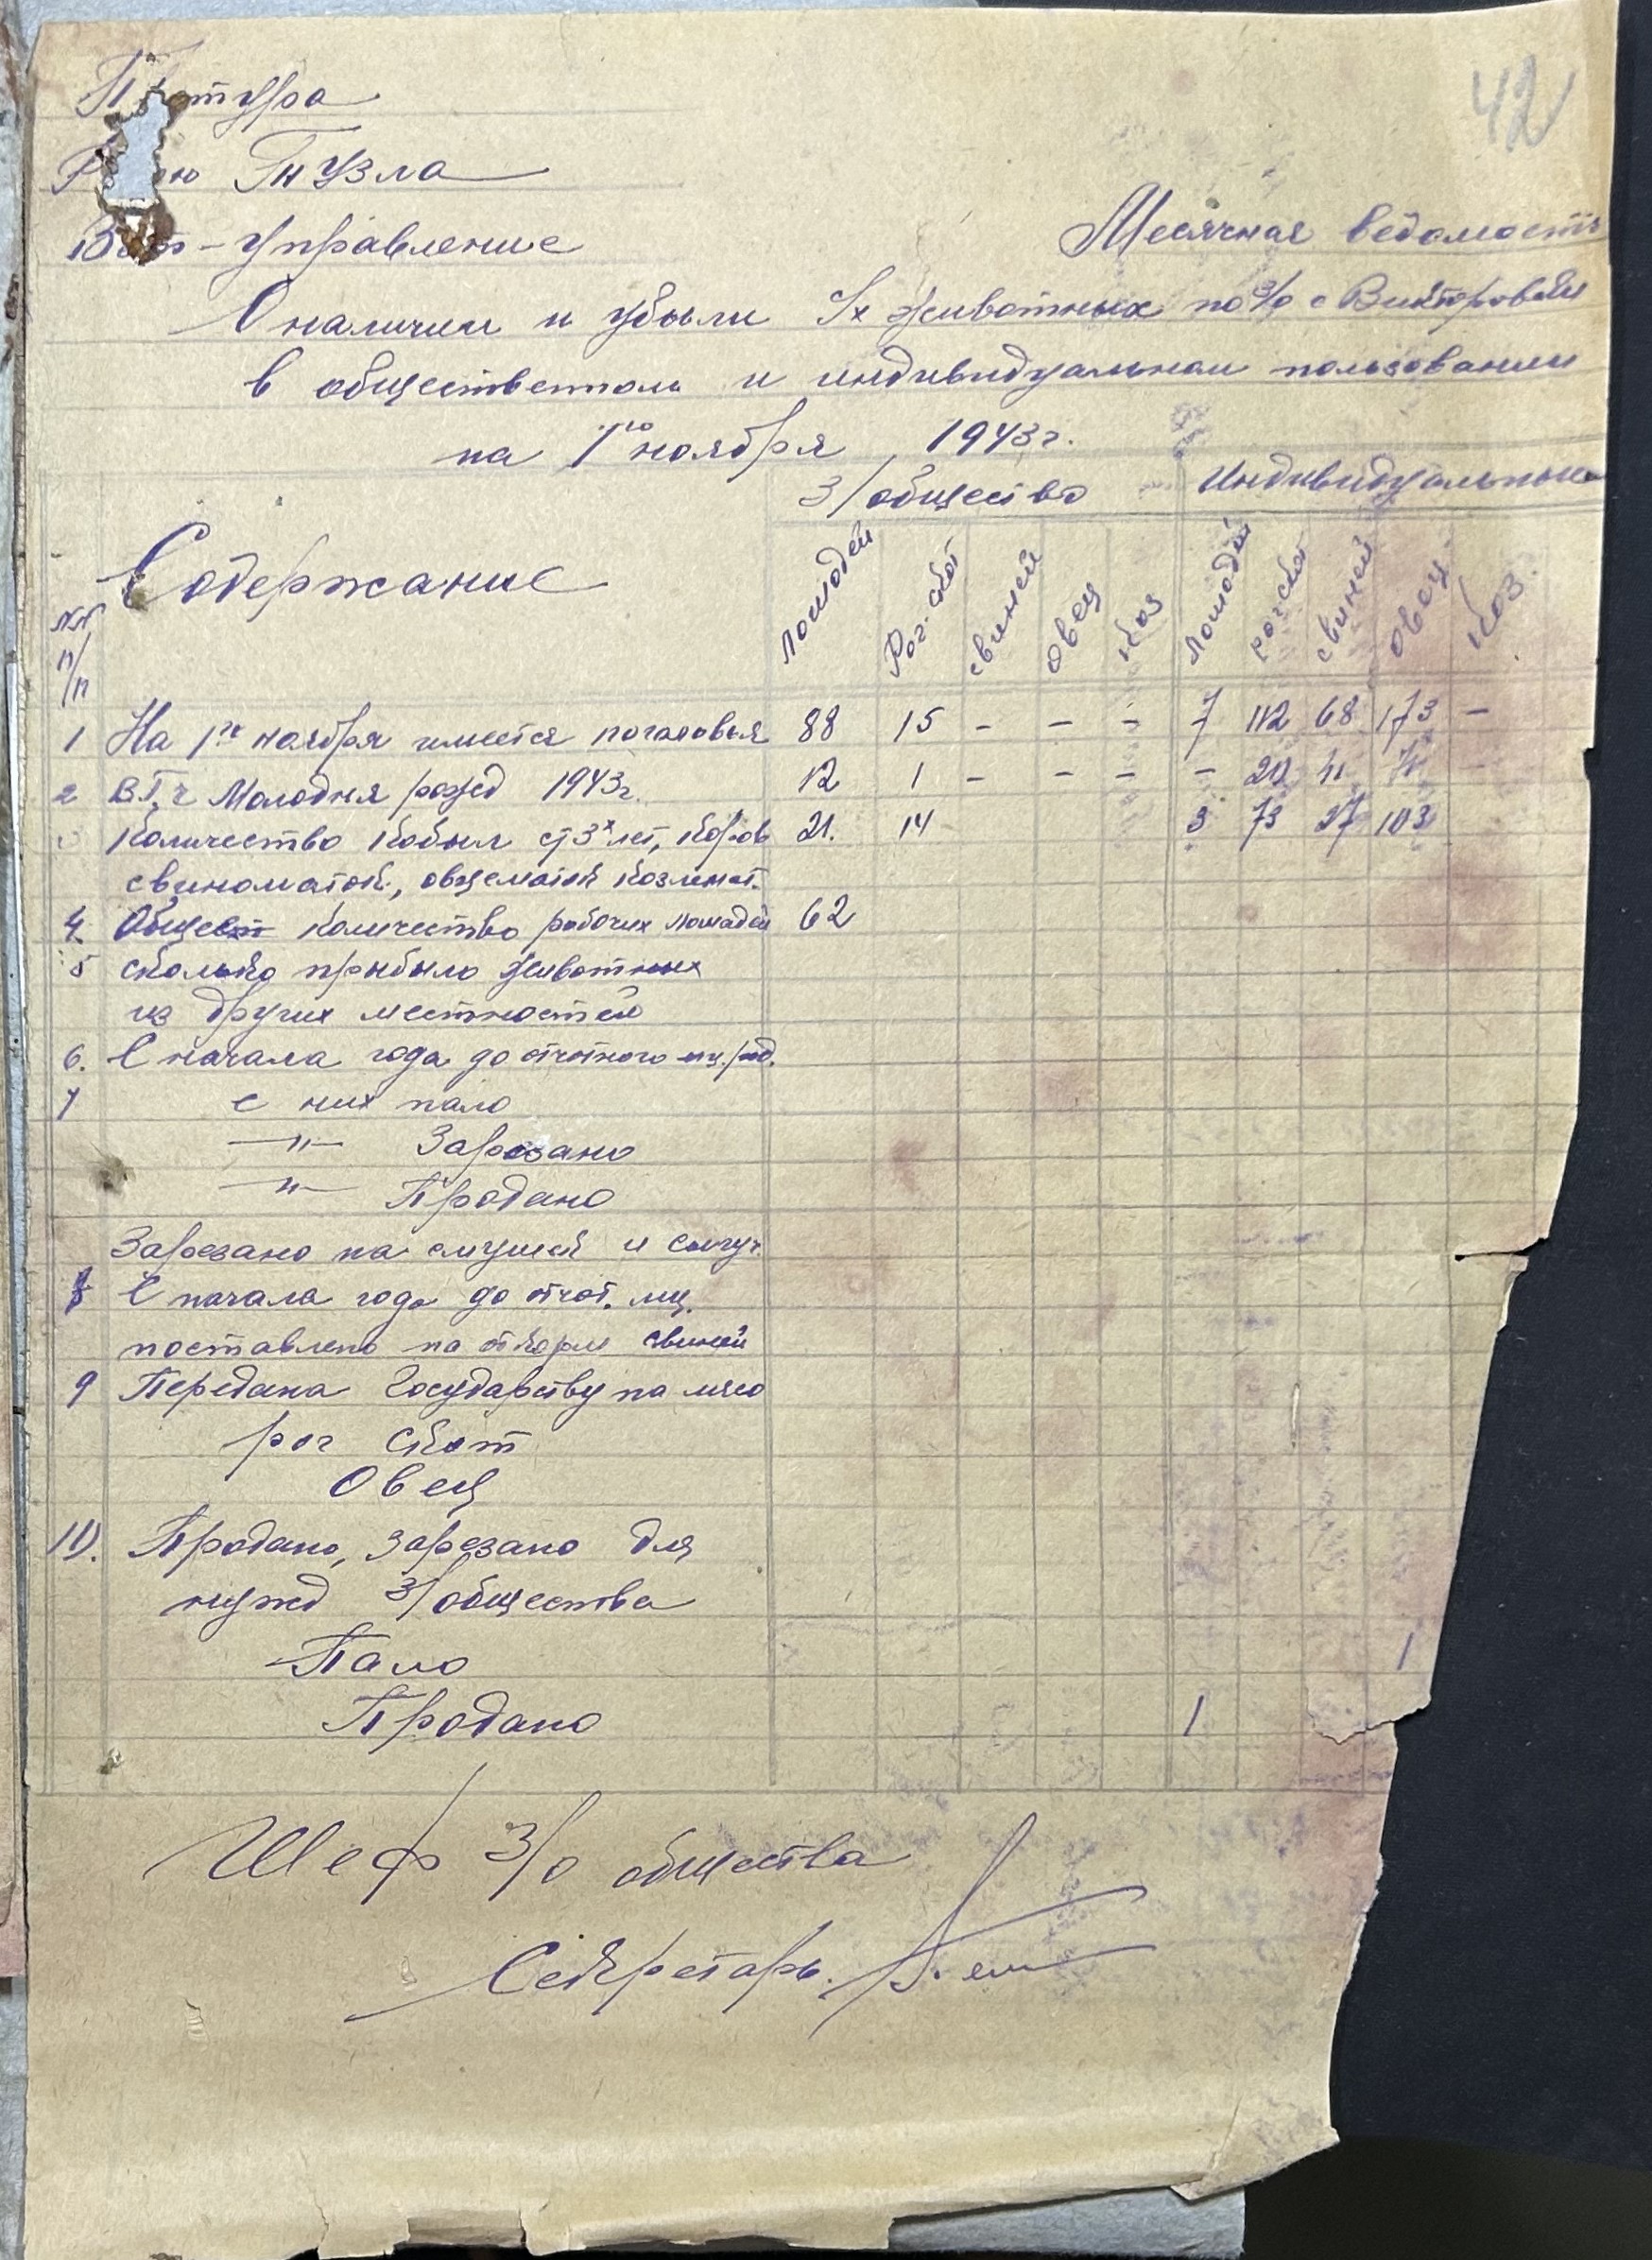 42
Претура
Району Тилигуло
Вет-управление
Месячная ведомость
О наличии и убыли с/х животных по з/о с Викторовки
в общественном и индивидуальном пользовании
на 1го ноября 1943 г.
З/общество Индивидуальных
NN п/п Содержание Лошадей Рог. скот свиней овец коз Лошадей рог. скот свиней овец коз
1 На 1го ноября имеется поголовья 88 15 - - - 7 112 68 173 -
2 В т. ч. Молодня рожд 1943 г. 12 1 - - - - 20 41 70 -
Количество кобыл ст 3х лет, коров 21. 14 3 73 27 103
свиноматок, овцематок козомат.
4. Общее количество рабочих лошадей 62
5 сколько прибыло животных
из других местностей
6. С начала года до отчотного мц.
7 с них пало
—"— Зарезано
—"— Продано
Зарезано на
8 С начала года до отчот. мц.
поставлено на откорм свиней
9 Передана Государству на мясо
рог скот
Овец
10. Продано, зарезано для
нужд З/общества
Пало 1
Продано 1
Шеф З/о общества
Секретарь.